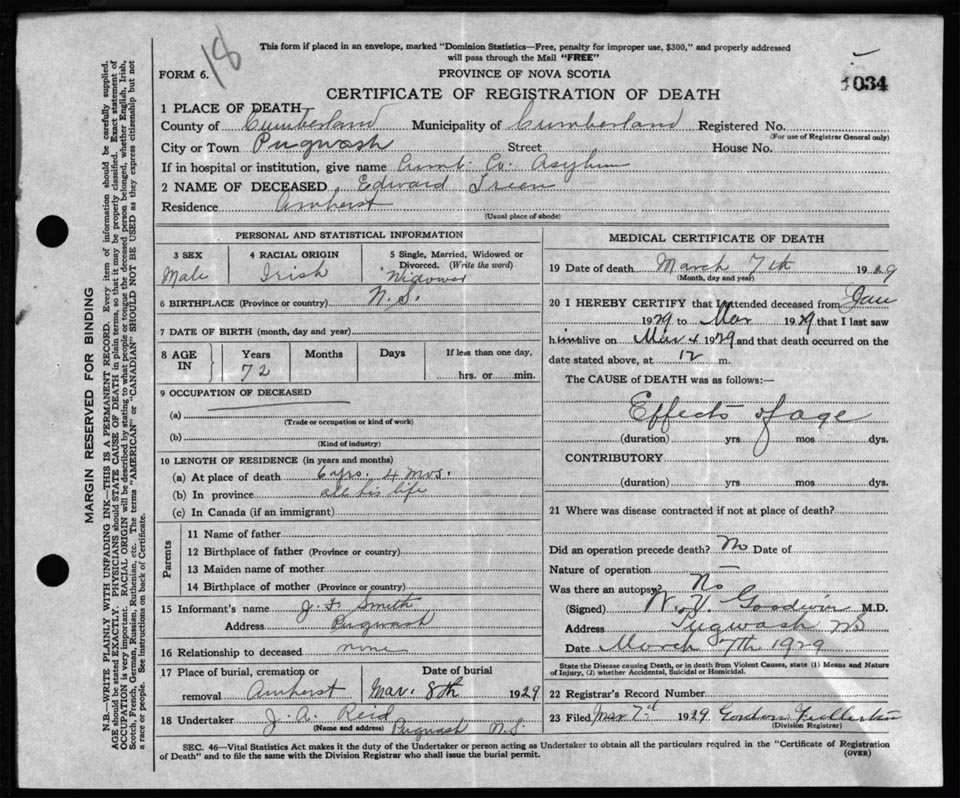 18
This form if placed in an envelope, marked "Dominion Statistics—Free, penalty for improper use, $300," and properly addressed
will pass through the Mail "FREE"
FORM 6.
PROVINCE OF NOVA SCOTIA
034
CERTIFICATE OF REGISTRATION OF DEATH
1 PLACE OF DEATH
County of Cumberland Municipality of Cumberland Registered No.
(For use of Registrar General only)
City or Town Pugwash Street House No.
If in hospital or institution, give name Cumb. Co. Asylum
2 NAME OF DECEASED Edward Treen
Residence Amherst
(Usual place of abode)
PERSONAL AND STATISTICAL INFORMATION
3 SEX
Male
4 RACIAL ORIGIN
Irish
5 Single, Married, Widowed or
Divorced. (Write the word)
Widower
6 BIRTHPLACE (Province or country) N.S.
7 DATE OF BIRTH (month, day and year)
8 AGE IN
Years
72
Months
Days
If less than one day,
hrs. or min.
9 OCCUPATION OF DECEASED
(a)
(Trade or occupation or kind of work)
(b)
(Kind of industry)
10 LENGTH OF RESIDENCE (in years and months)
(a) At place of death 6 yrs. 4 mos.
(b) In province all his life
(c) In Canada (if an immigrant)
Parents
11 Name of father
12 Birthplace of father (Province or country)
13 Maiden name of mother
14 Birthplace of mother (Province or country)
15 Informant's name J. F. Smith
Address Pugwash
16 Relationship to deceased none
17 Place of burial, cremation or
removal Amherst
Date of burial
Mar. 8th 1929
18 Undertaker J. A. Reid
(Name and address) Pugwash N.S
MEDICAL CERTIFICATE OF DEATH
19 Date of death March 7th 1929
(Month, day and year)
20 I HEREBY CERTIFY that I attended deceased from Jan
1929 to Mar 1929 that I last saw
him alive on Mar 4 1929 and that death occurred on the
date stated above, at 12 m.
The CAUSE of DEATH was as follows:—
Effects of age
(duration) yrs mos dys.
CONTRIBUTORY
(duration) yrs mos dys.
21 Where was disease contracted if not at place of death?
Did an operation precede death? No Date of
Nature of operation —
Was there an autopsy? No
(Signed) Goodwin M.D.
Address Pugwash NS
Date March 7th 1929
State the Disease causing Death, or in death from Violent Causes, state (1) Means and Nature
of Injury, (2) whether Accidental, Suicidal or Homicidal.
22 Registrar's Record Number
23 Filed Mar 7th 1929 Gordon Fullerton
(Division Registrar)
SEC. 46—Vital Statistics Act makes it the duty of the Undertaker or person acting as Undertaker to obtain all the particulars required in the "Certificate of Registration
of Death" and to file the same with the Division Registrar who shall issue the burial permit.
(OVER)
MARGIN RESERVED FOR BINDING
N.B.—WRITE PLAINLY WITH UNFADING INK—THIS IS A PERMANENT RECORD. Every item of information should be carefully supplied.
AGE should be stated EXACTLY. PHYSICIANS should STATE CAUSE OF DEATH in plain terms, so that it may be properly classified. Exact statement of
OCCUPATION is very important. RACIAL ORIGIN will be described by stating to what people or tongue the deceased person belonged, whether English, Irish,
Scotch, French, German, Russian, Ruthenian, etc. The terms "AMERICAN" or "CANADIAN" SHOULD NOT BE USED as they express citizenship but not
a race or people. See instructions on back of Certificate.